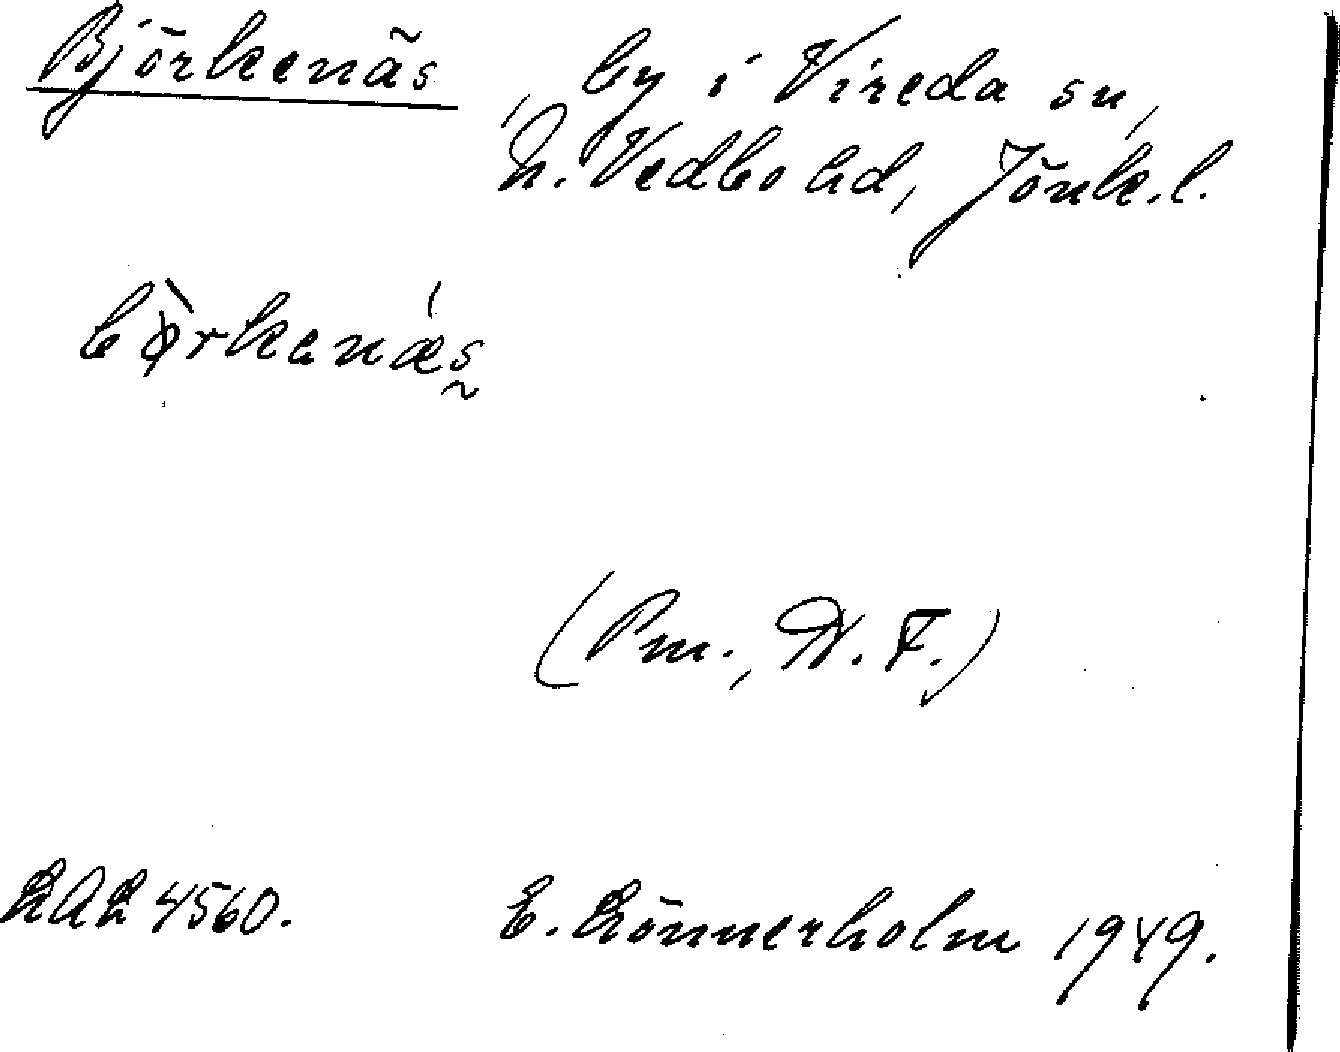 Björkenäs, by i Vireda sn,
N. Vedbo hd, Jönk.l.
bø̀rkenǽs̰
(Pm., N. F.)
LAL 4560. E. Lönnerholm 1949.